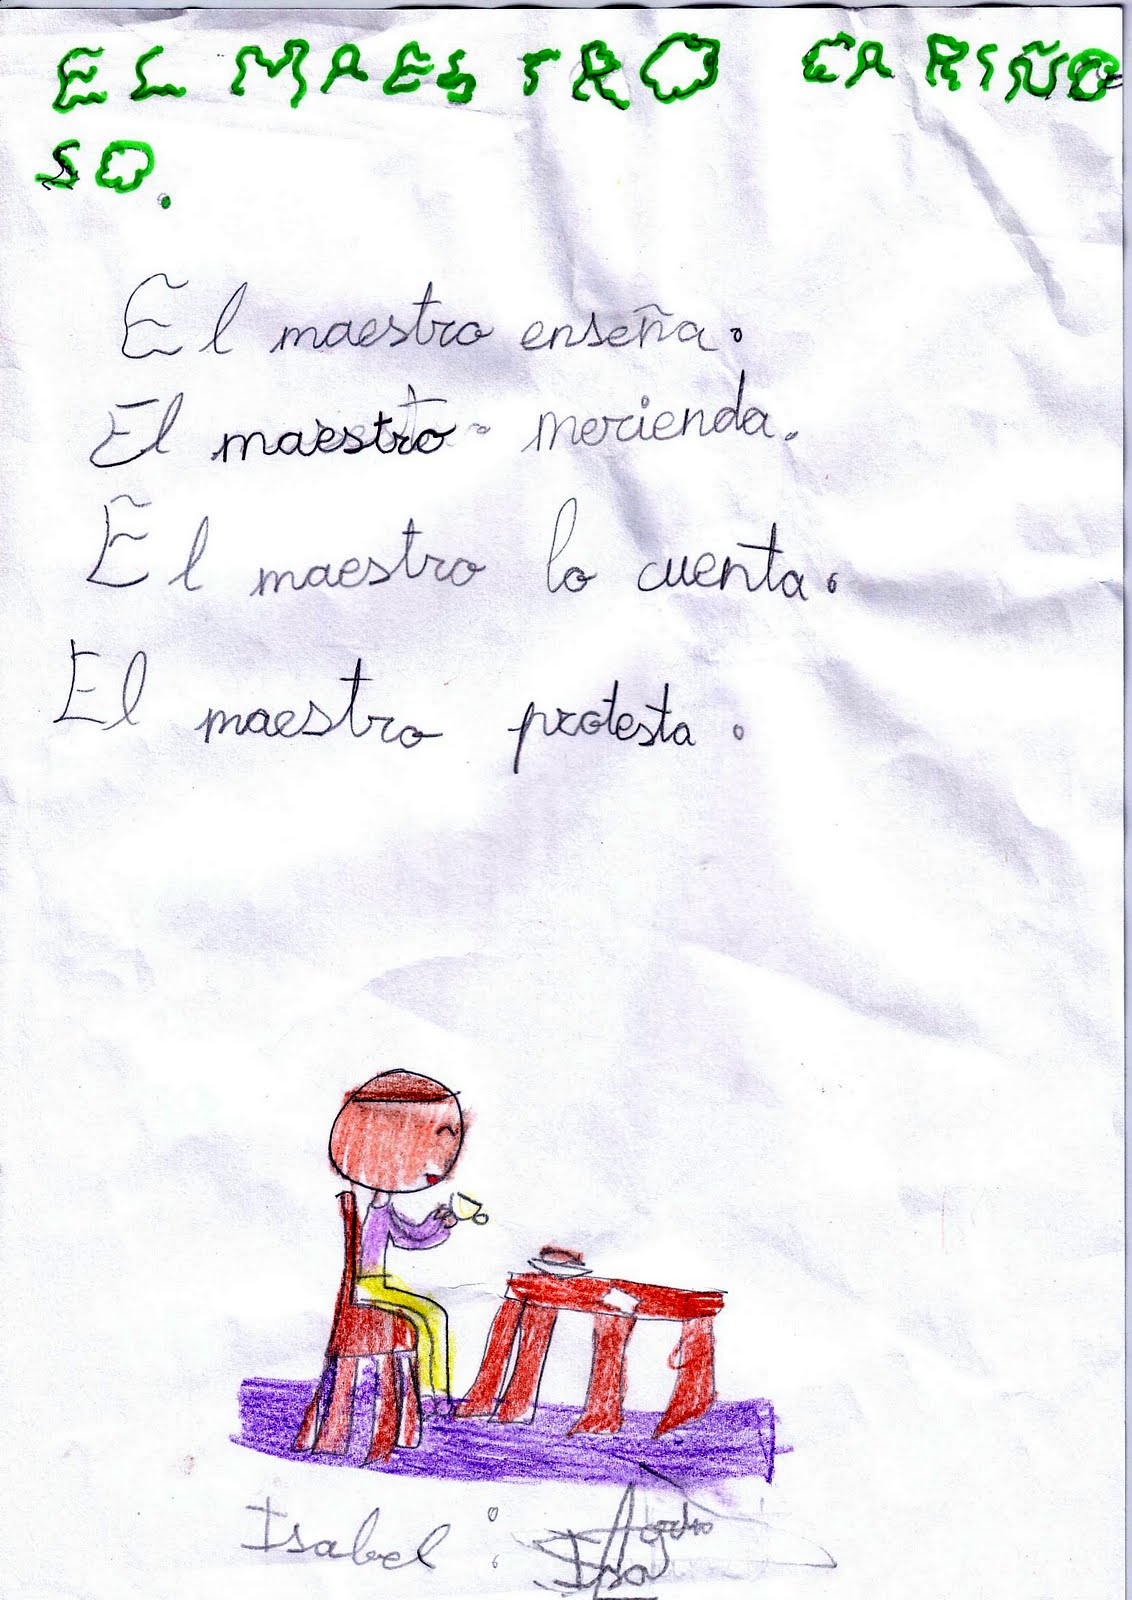 EL MAESTRO CARIÑO
SO.
El maestro enseña.
El maestro merienda.
El maestro lo cuenta.
El maestro protesta.
Isabel: Isa